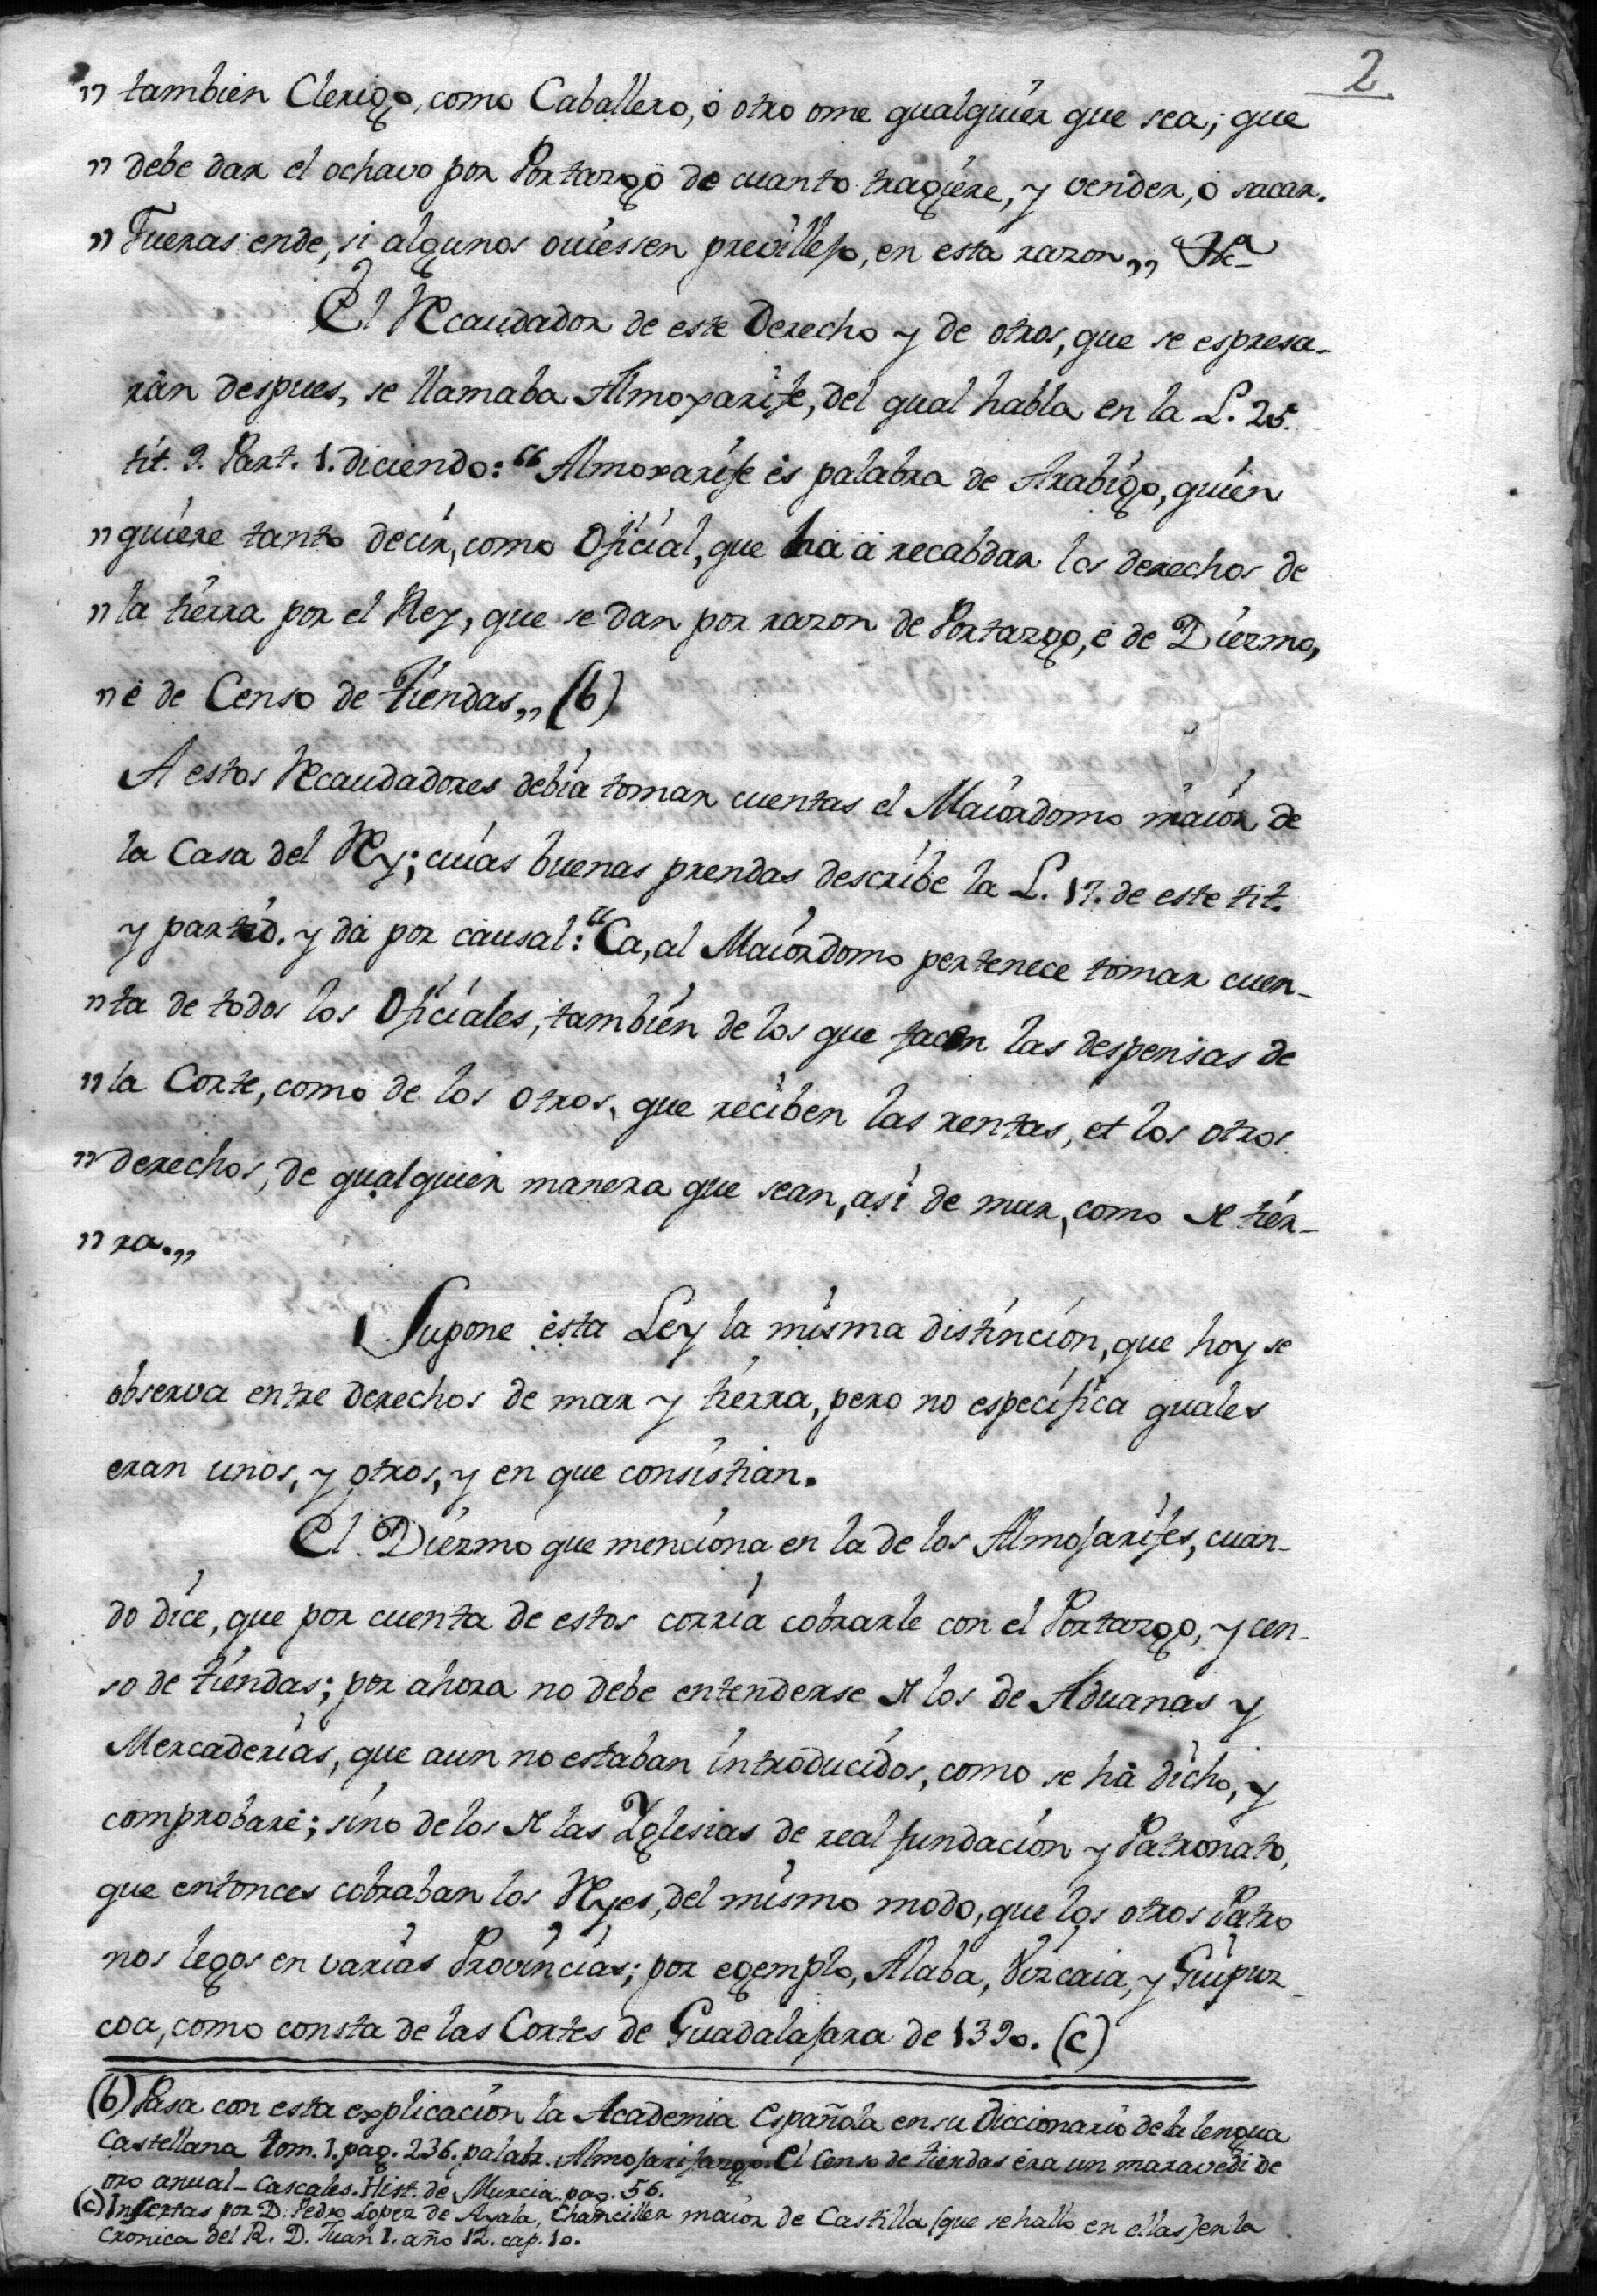 2.
„ tambien Clerigo, como Caballero, ó otro ome qualquier que sea; que
„ debe dar el ochavo por Portazgo de cuanto tragiere, y vender, ó sacar.
„ Fueras ende, si algunos oviessen previllejo, en esta razon„ &ca
El Recaudador de este Derecho y de otros, que se espresa-
rán despues, se llamaba Almoxarife, del qual habla en la L. 25.
tit. 9. Part. 1. diciendo: “Almoxarife és palabra de Arabigo, quien
„ quiere tanto decir, como Oficial, que ha á recabdar los derechos de
„ la tierra por el Rey, que se dan por razon de Portazgo, é de Diezmo,
„ é de Censo de Tiendas„ (b)
A estos Recaudadores debia tomar cuentas el Maiordomo maior de
la Casa del Rey; cuias buenas prendas describe la L. 17. de este tit.
y partid. y dá por causal: “Ca, al Maiordomo pertenece tomar cuen-
„ ta de todos los Oficiales, tambien de los que facen las despensas de
„ la Corte, como de los otros, que reciben las rentas, et los otros
„ derechos, de qualquier manera que sean, así de mar, como de tier-
„ ra.„
Supone ésta Ley la misma distincion, que hoy se
observa entre derechos de mar y tierra, pero no especifica quales
eran unos, y otros, y en que consistian.
El Diezmo que menciona en la de los Almojarifes, cuan-
do dice, que por cuenta de estos corria cobrarle con el Portazgo, y cen-
so de tiendas; por ahora no debe entenderse de los de Aduanas y
Mercaderias, que aun no estaban introducidos, como se há dicho, y
comprobaré; sino de los de las Yglesias de real fundacion y Patronato,
que entonces cobraban los Reyes, del mismo modo, que los otros Patro
nos legos en varias Provincias; por egemplo, Alaba, Vizcaia, y Guipuz-
coa, como consta de las Cortes de Guadalajara de 1390. (c)
(b) Pasa con esta explicacion la Academia Española en su Diccionario de la lengua
Castellana tom. 1. pag. 236. palabr. Almojarifazgo. El Censo de tiendas éra un maravedi de
oro anual_ Cascales. Hist. de Murcia pag. 56.
(c) Insertas por D. Pedro Lopez de Ayala, Chanciller maior de Castilla (que se halló en ellas) en la
Cronica del R. D. Juan I. año 12. cap. 10.